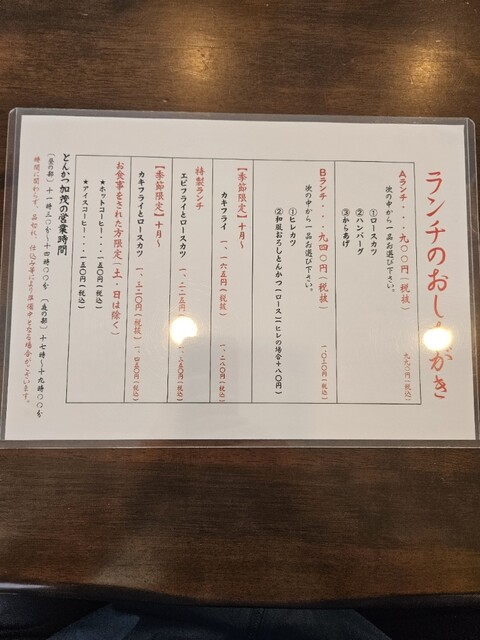 ランチのおしながき
Aランチ・・・九〇〇円(税抜) 九九〇円(税込)
次の中から一品お選び下さい。
①ロースカツ
②ハンバーグ
③からあげ
Bランチ・・・九四〇円(税抜) 一、〇三〇円(税込)
次の中から一品お選び下さい。
①ヒレカツ
②和風おろしとんかつ(ロース)(ヒレの場合+八〇円)
【季節限定】十月〜
カキフライ 一、一六五円(税抜) 一、二八〇円(税込)
特製ランチ
エビフライとロースカツ 一、二二五円(税抜) 一、三五〇円(税込)
【季節限定】十月〜
カキフライとロースカツ 一、三二〇円(税抜) 一、四五〇円(税込)
お食事をされた方限定(土・日は除く)
★ホットコーヒー・・・一五〇円(税込)
★アイスコーヒー・・・一五〇円(税込)
とんかつ加茂の営業時間
(昼の部)十一時三〇分〜十四時〇〇分 (夜の部)十七時〜十九時〇〇分
時間に関わらず、品切れ、仕込み等により準備中となる場合がございます。